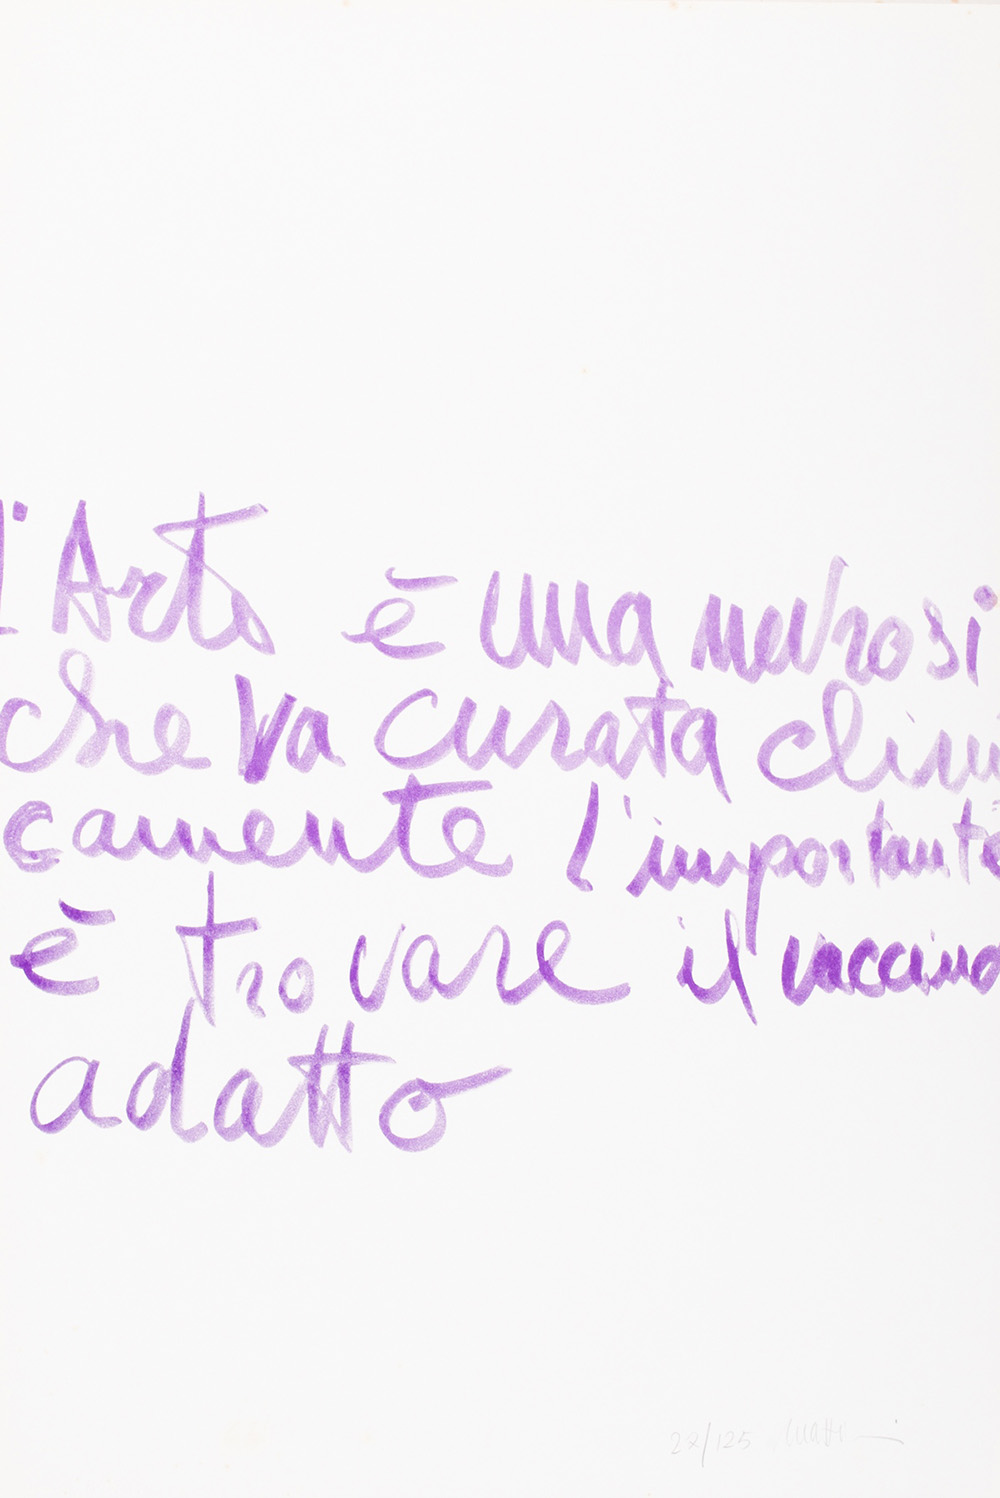 l'Arte è una nevrosi
che va curata clini
camente l'importante
è trovare il vaccino
adatto
27/125